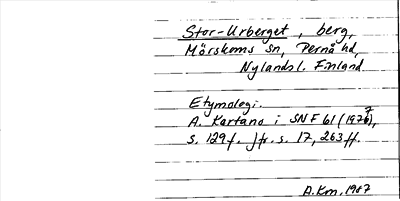 Stor-Urberget, berg,
Mörskoms sn, Pernå hd,
Nylandsl. Finland
Etymologi.
A. Kartano i SNF 61 (1977),
s. 129f. Jfr. s. 17, 263ff.
A.Km, 1987